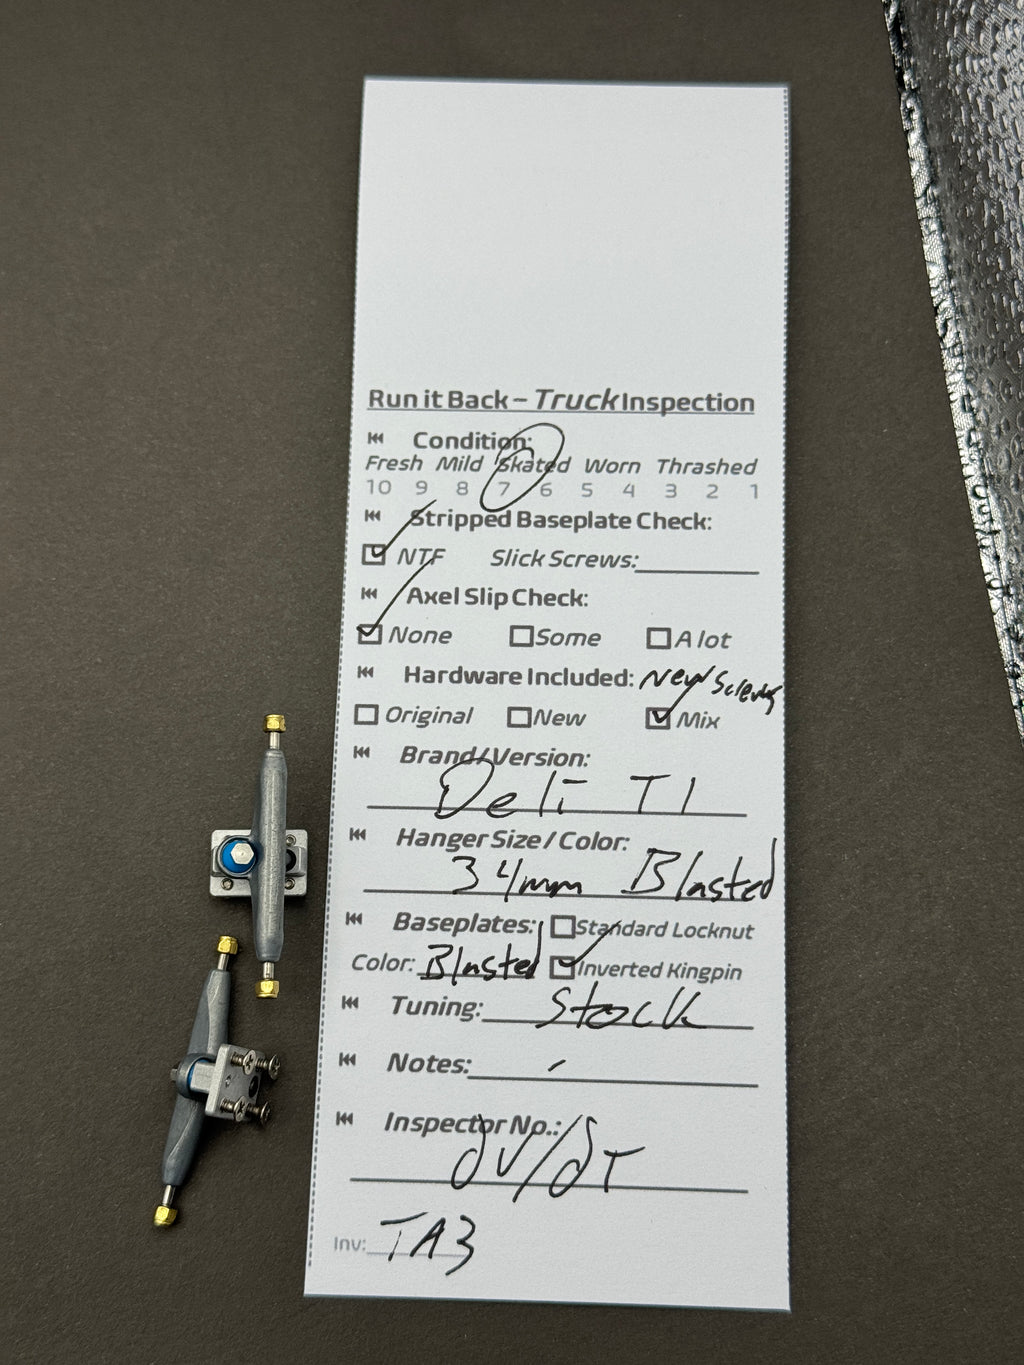 Run it Back – Truck Inspection
Condition:
Fresh Mild Skated Worn Thrashed
10 9 8 7 6 5 4 3 2 1
Stripped Baseplate Check:
NTF Slick Screws:
Axel Slip Check:
None Some A lot
Hardware Included: New Screws
Original New Mix
Brand/Version:
Deli T1
Hanger Size / Color:
34mm Blasted
Baseplates: Standard Locknut
Color: Blasted Inverted Kingpin
Tuning: Stock
Notes:
Inspector No.:
Inv: TA3